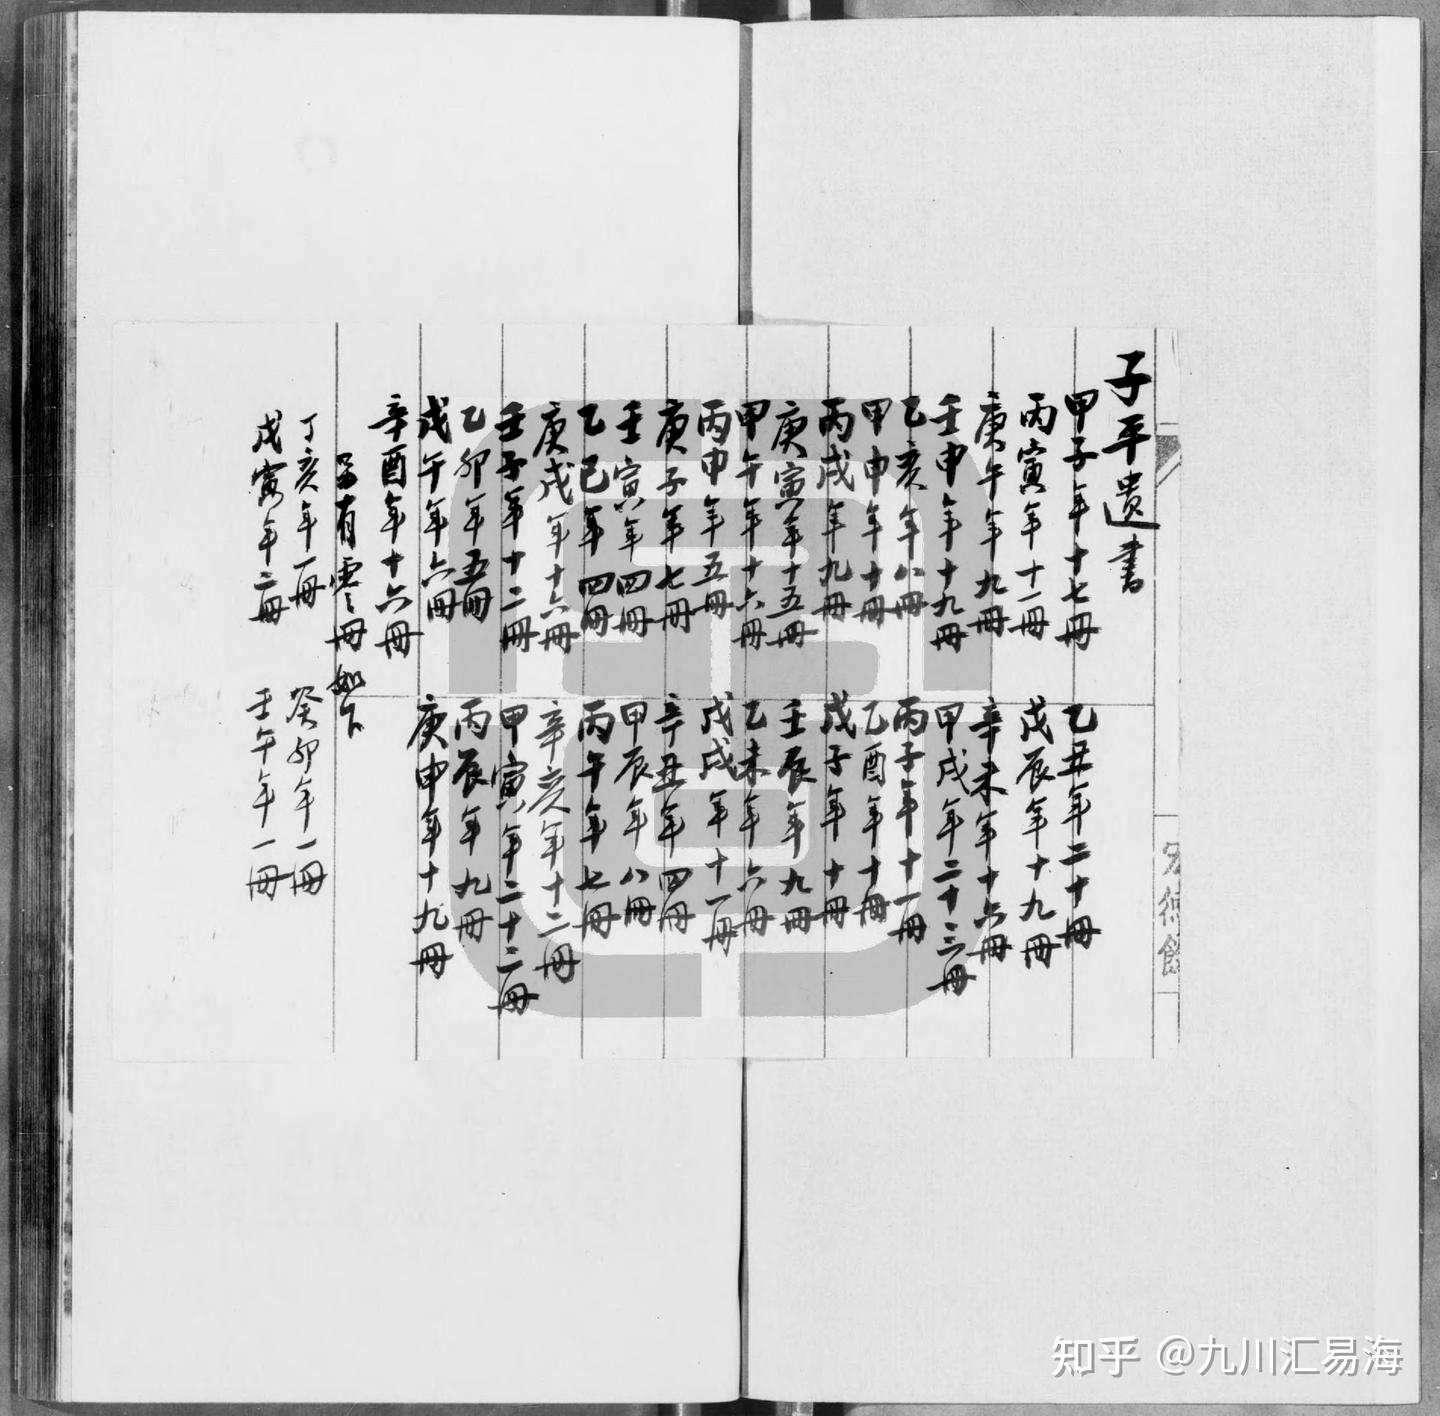 子平遗書
甲子年十七冊　乙丑年二十冊
丙寅年十一冊　戊辰年十九冊
庚午年九冊　辛未年十六冊
壬申年十九冊　甲戌年二十三冊
乙亥年八冊　丙子年十一冊
甲申年十冊　乙酉年十冊
丙戌年九冊　戊子年十冊
庚寅年十五冊　壬辰年九冊
甲午年十六冊　乙未年六冊
丙申年五冊　戊戌年十一冊
庚子年七冊　辛丑年四冊
壬寅年四冊　甲辰年八冊
乙巳年四冊　丙午年七冊
庚戌年十六冊　辛亥年十二冊
壬子年十二冊　甲寅年二十二冊
乙卯年五冊　丙辰年九冊
戊午年六冊　庚申年十九冊
辛酉年十六冊
另有零冊如下
丁亥年一冊　癸卯年一冊
戊寅年二冊　壬午年一冊
知乎 @九川汇易海